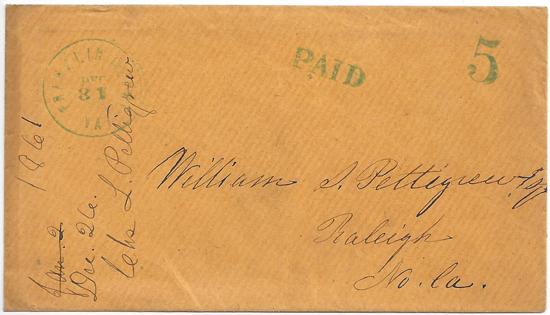 FRANKLIN
DEC
31
VA
PAID
5
William S. Pettigrew Esq
Raleigh
No. Ca.
1861
Jan. 2
Dec. 26.
Chs L. Pettigrew